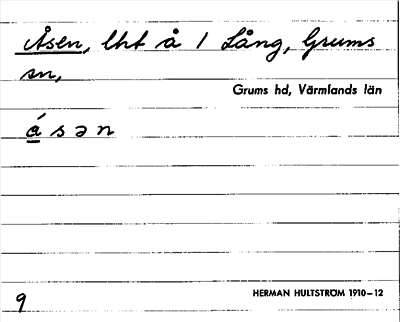 Åsen, lht å 1 Lång, Grums
sn,
Grums hd, Värmlands län
á s ə n
9
HERMAN HULTSTRÖM 1910–12